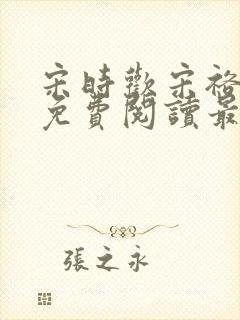 宋時歡宋裕
免費閱讀最
張之永